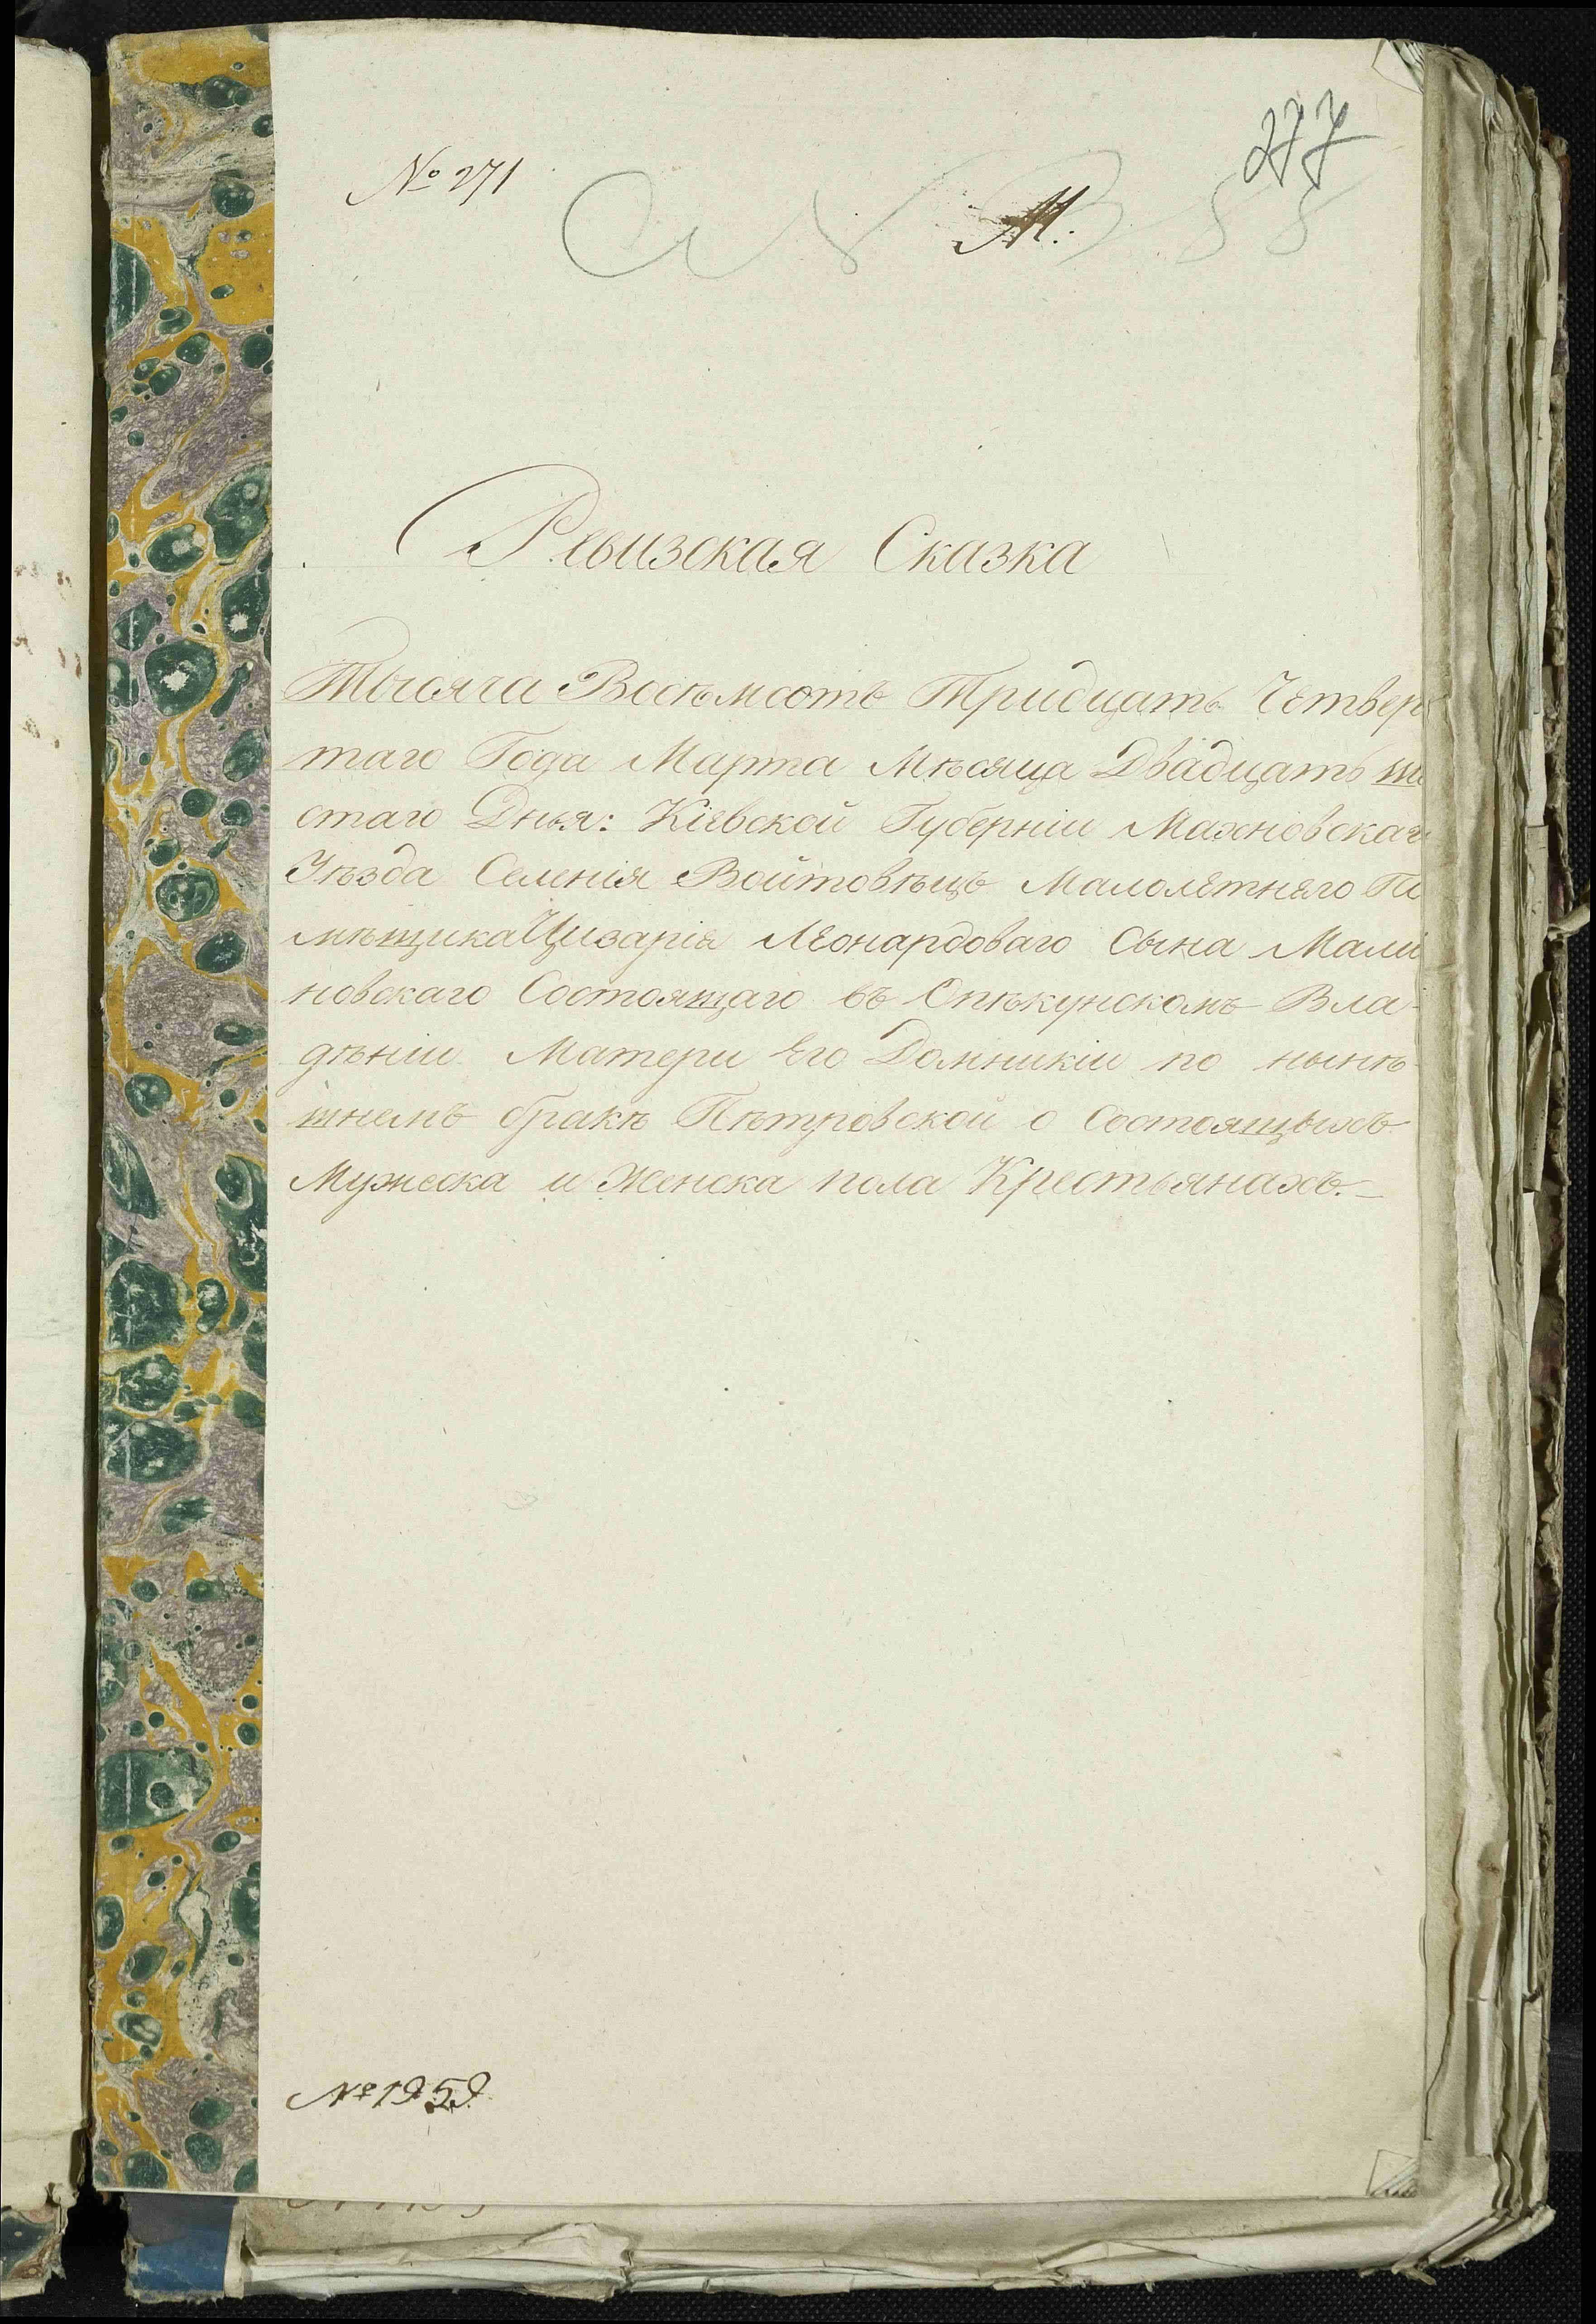 277
№ 271
М.
Ревизская Сказка
Тысяча Восѣмсотъ Тридцать Четвер
таго Года Марта Мѣсяца Двадцать ше
стаго Дньа: Кіевской Губерніи Махновскаго
Уѣзда Селенія Войтовѣцъ Малолетнего По
мѣщика Цизарія Леонардоваго Сына Мали
новскаго Состоящаго въ Опѣкунскомъ Вла-
дѣніи Матери Его Домникіи по нынѣ-
шнемъ бракѣ Пѣтровской о Состоящыхъ
Мужеска и Женска пола Крестьянахъ.
№ 1959